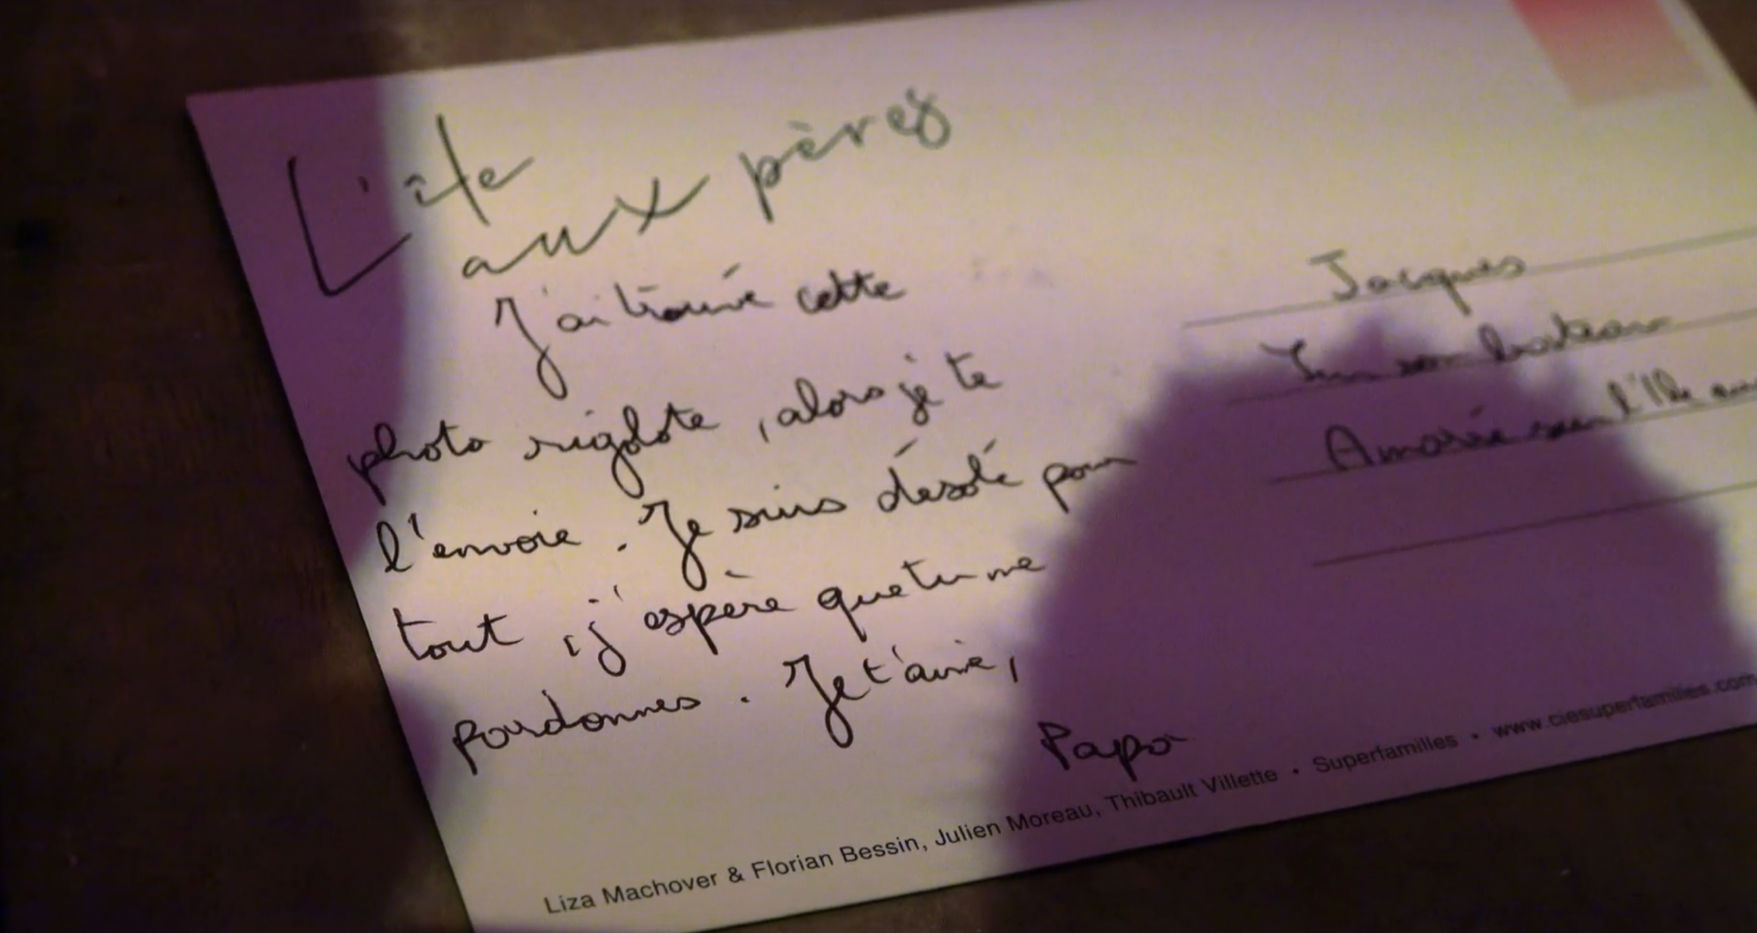 L'île
aux pères
J'ai trouvé cette
photo rigolote, alors je te
l'envoie. Je suis désolé pour
tout, j'espère que tu me
pardonnes. Je t'aime,
Papa
Jacques
Sur son bateau
Amarré sur l'île
Liza Machover & Florian Bessin, Julien Moreau, Thibault Villette • Superfamilles • www.ciesuperfamilles.com